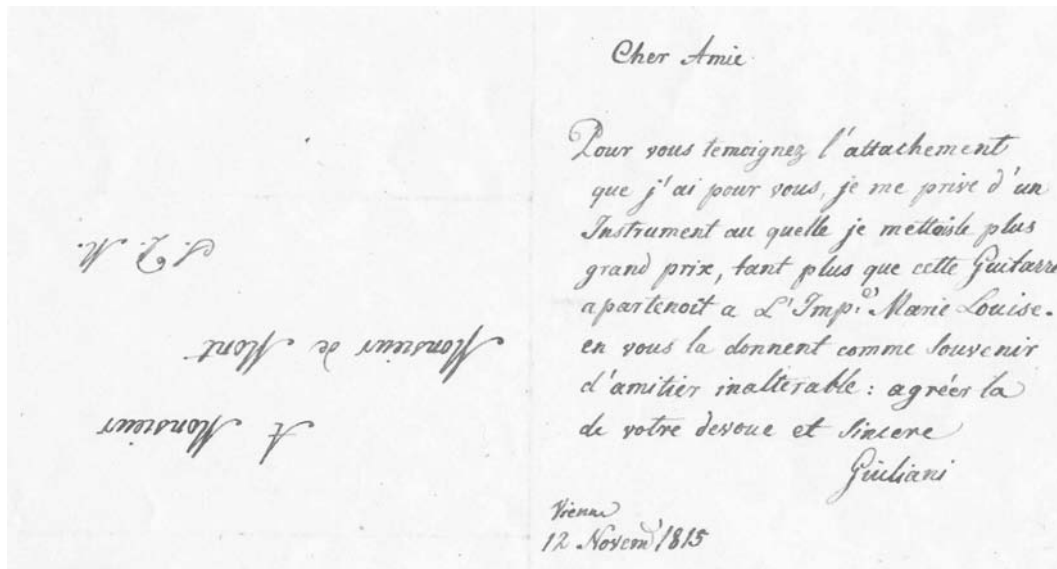 Cher Amie
Pour vous temoignez l'attachement
que j'ai pour vous, je me prive d'un
Instrument au quelle je mettoisle plus
grand prix, tant plus que cette Guitarre
apartenoit a L'Imp.e Marie Louise.
en vous la donnent comme souvenir
d'amitier inalterable : agréer la
de votre devoue et sincere
Giuliani
Vienne
12 Novem 1815
A Monsieur
Monsieur de Mont